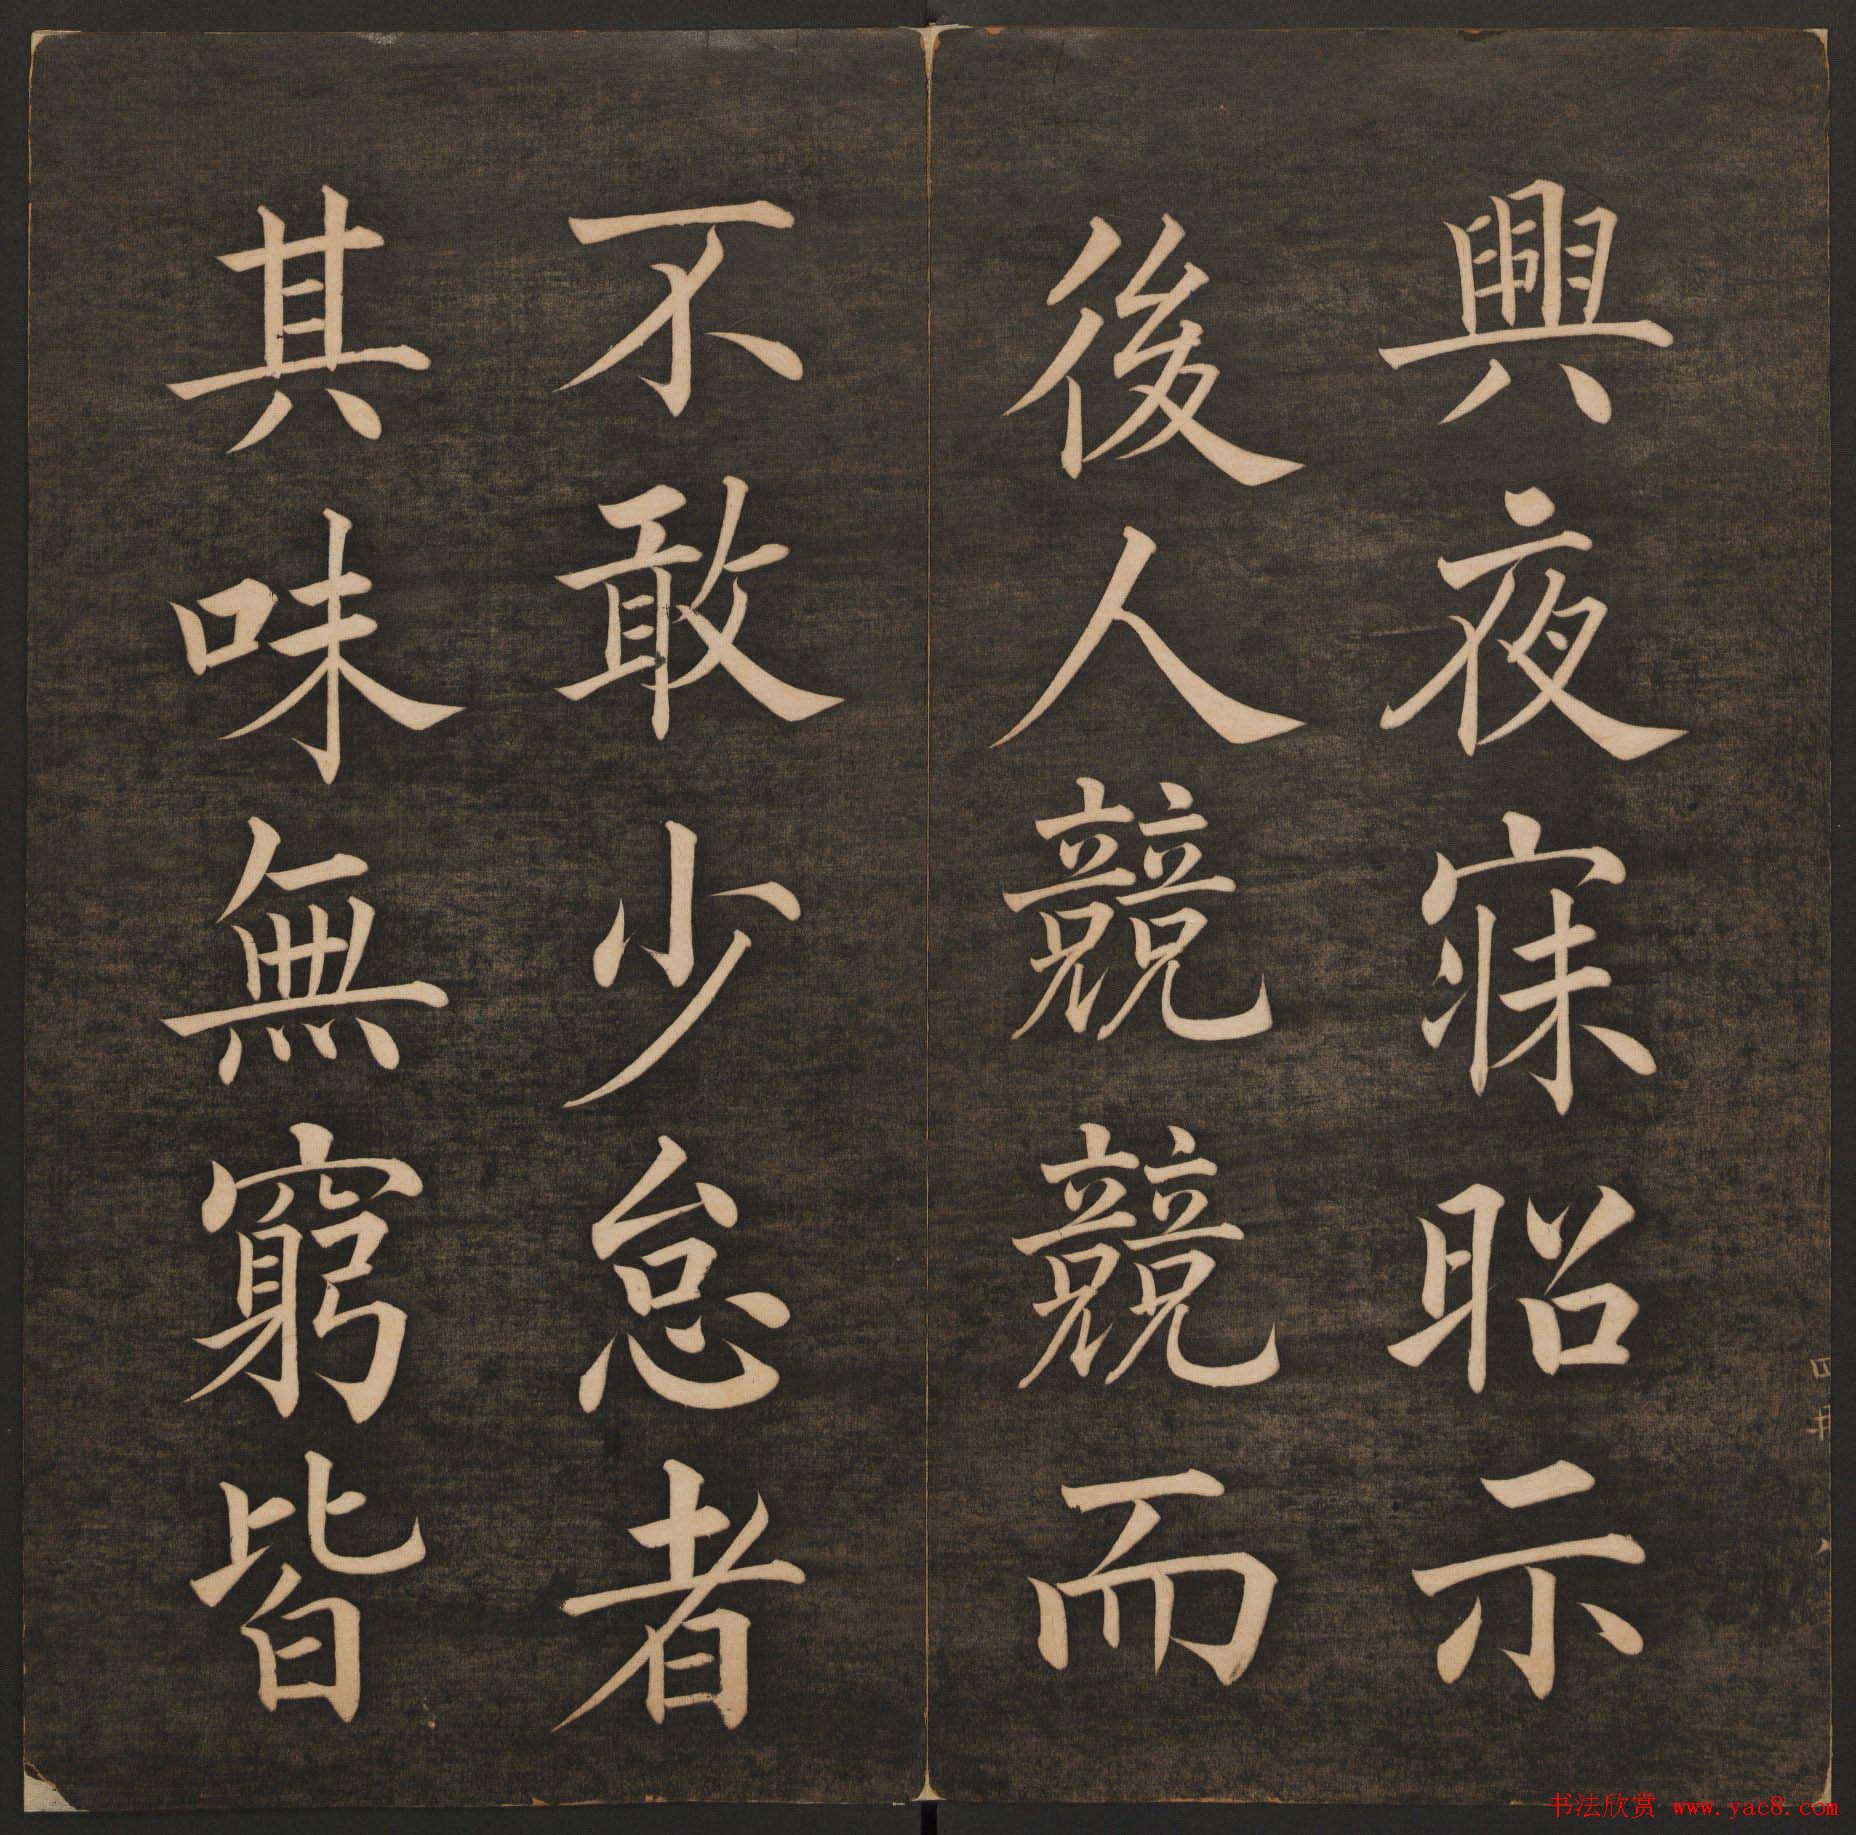 興夜寐昭示
後人競競而
不敢少怠者
其味無窮皆
书法欣赏 www.yac8.com